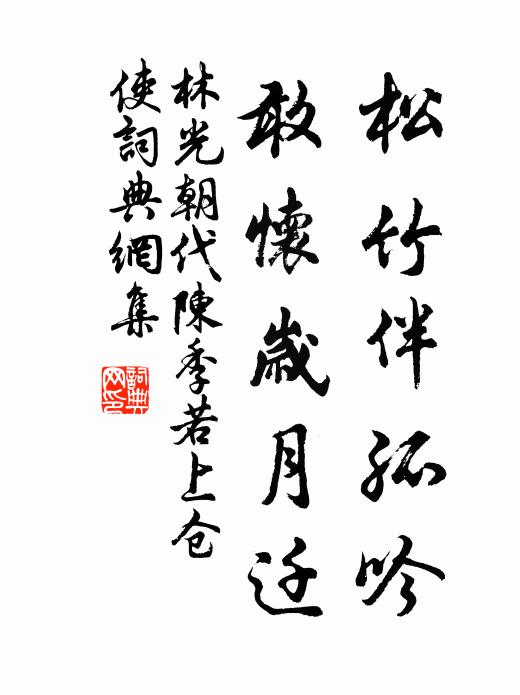 松竹伴孤吟
敢懷歲月迁
林光朝代陳季若上仓
使詞典網集
詞典
网印